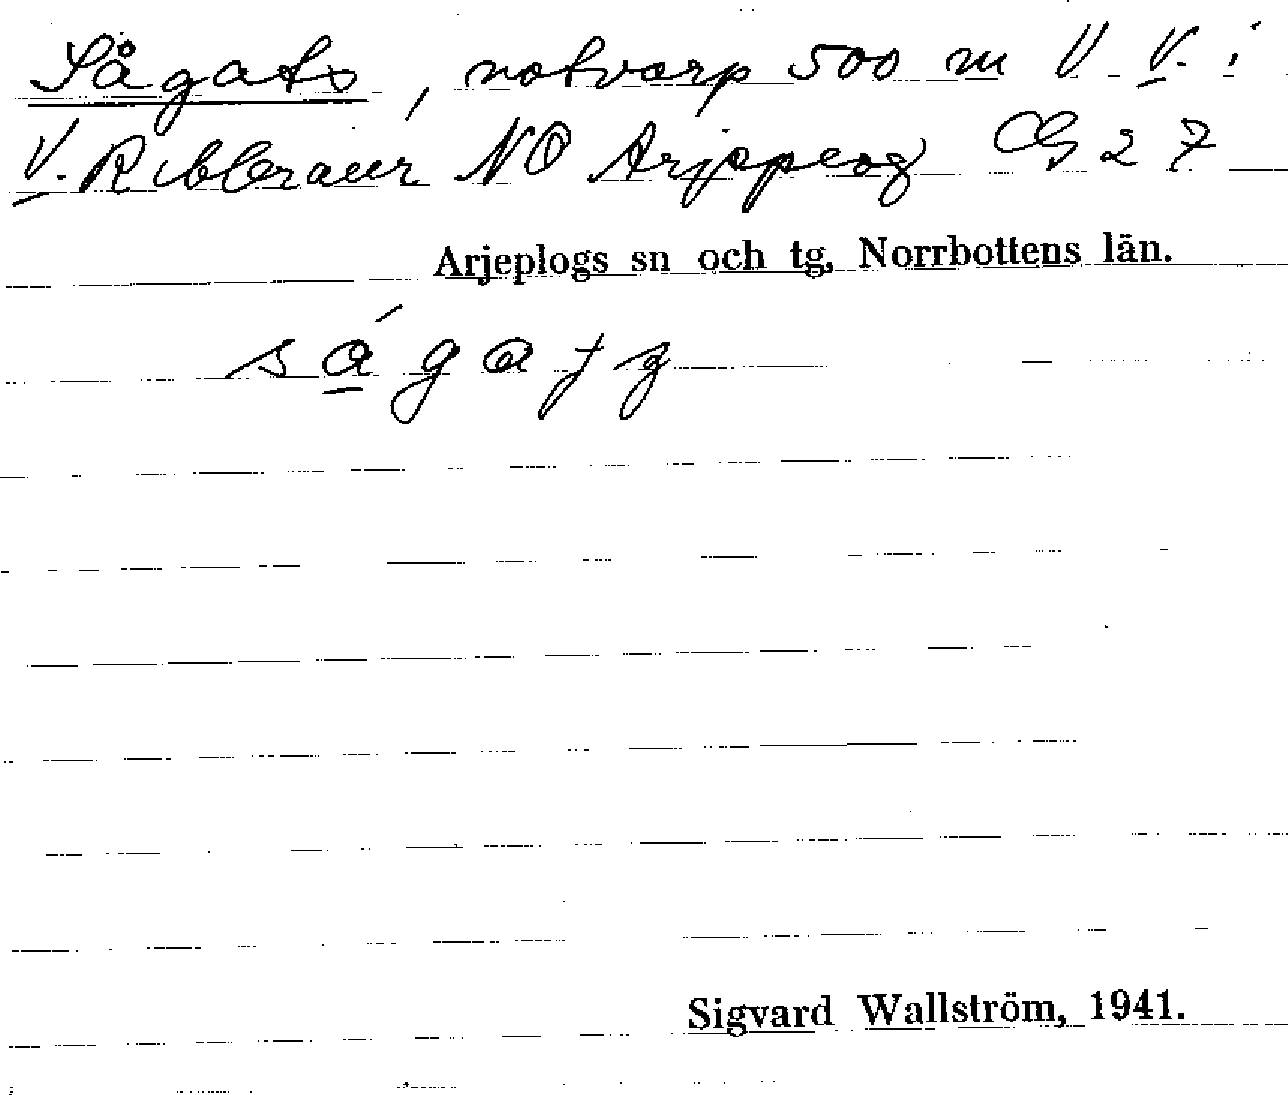 Sågats, notvarp 500 m V V. i
V. Ribleraur NO Arjeplog CG 27
Arjeplogs sn och tg, Norrbottens län.
ság a t z
Sigvard Wallström, 1941.